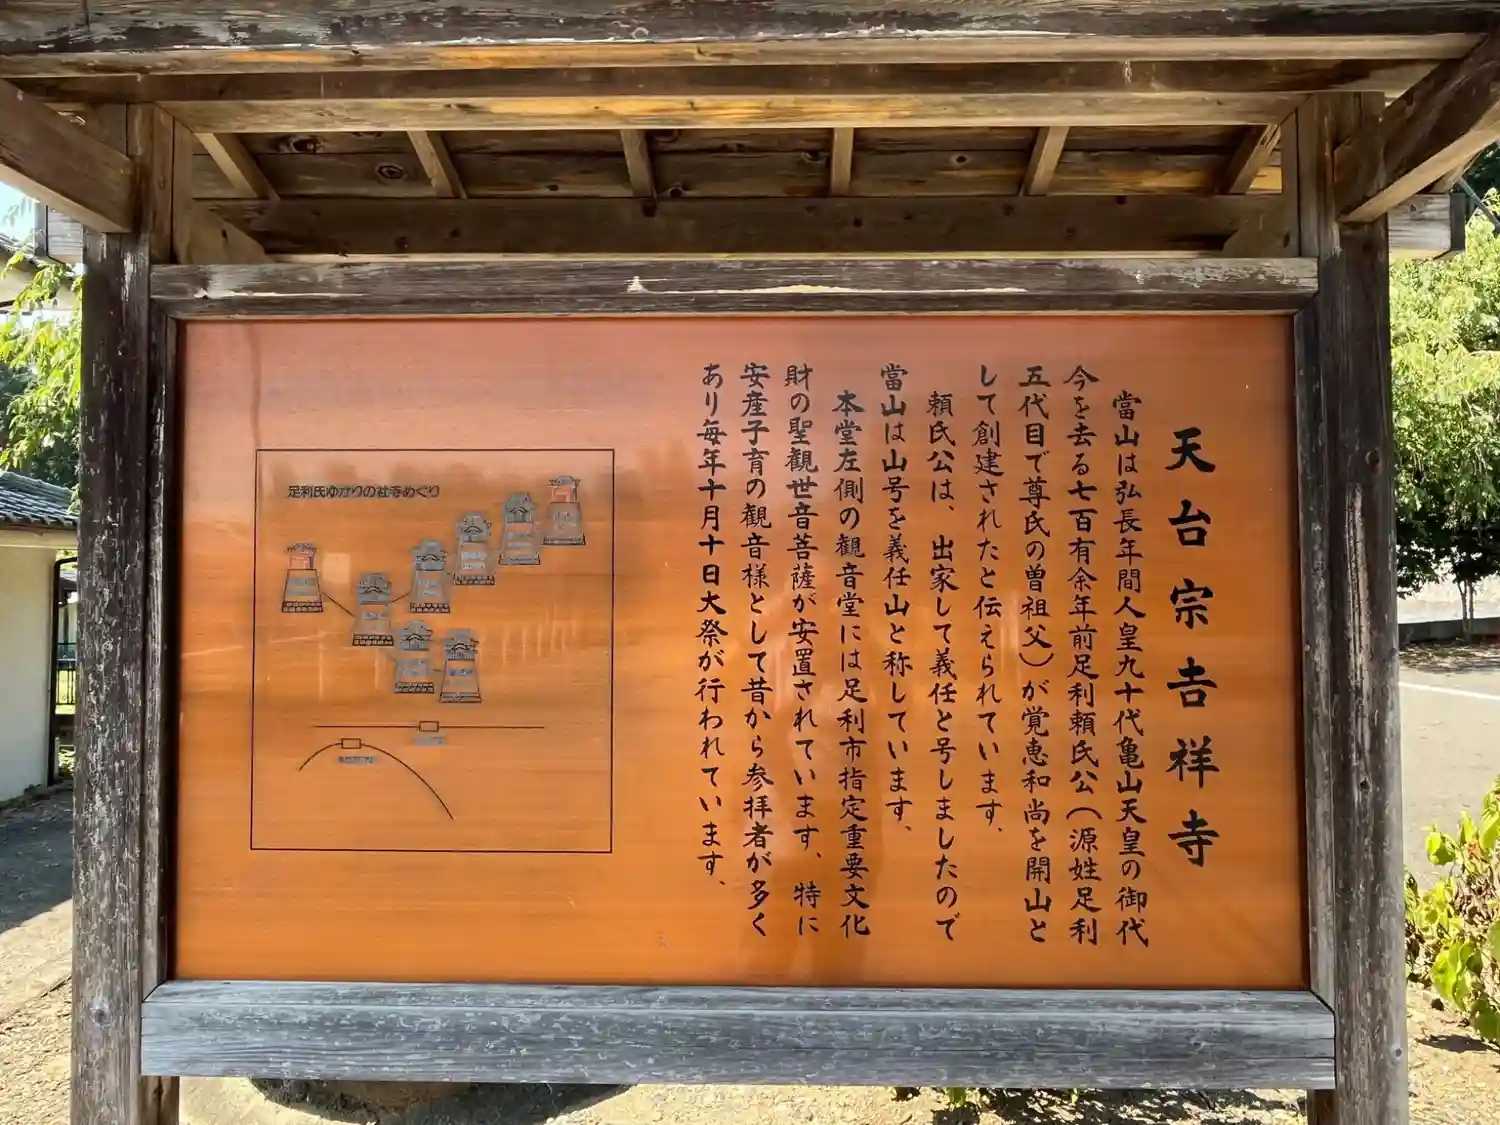 天台宗吉祥寺
當山は弘長年間人皇九十代亀山天皇の御代
今を去る七百有余年前足利頼氏公(源姓足利
五代目で尊氏の曽祖父)が覚恵和尚を開山と
して創建されたと伝えられています、
頼氏公は、出家して義任と号しましたので
當山は山号を義任山と称しています、
本堂左側の観音堂には足利市指定重要文化
財の聖観世音菩薩が安置されています、特に
安産子育の観音様として昔から参拝者が多く
あり毎年十月十日大祭が行われています、
足利氏ゆかりの社寺めぐり